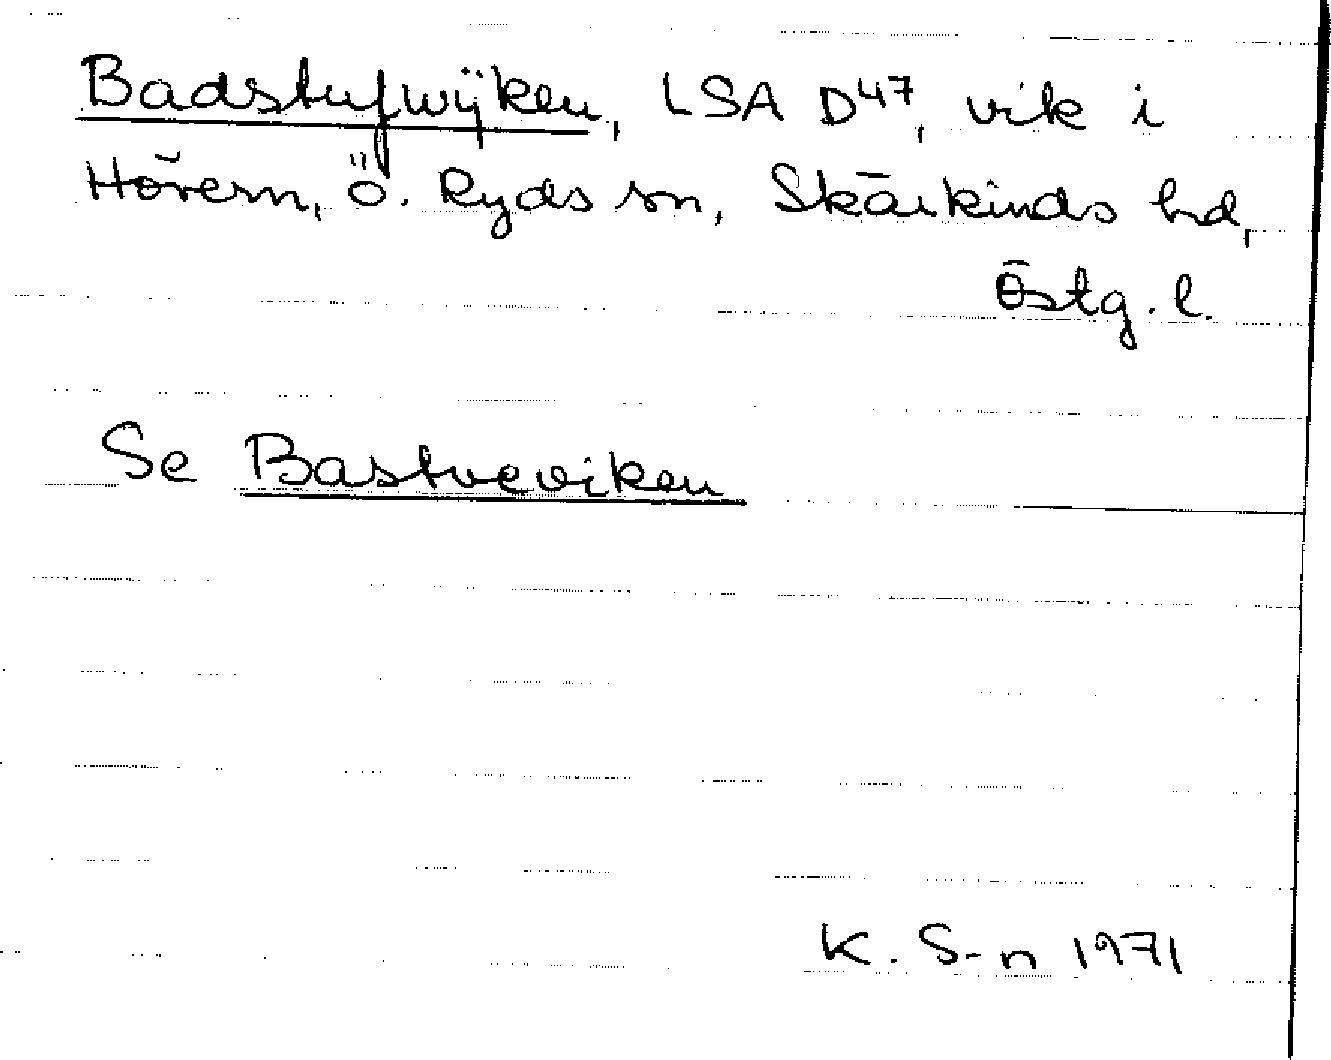 Badstufwijken, LSA D47, vik i
Hövern, Ö. Ryds sn, Skärkinds hd,
Östg. l.
Se Bastveviken
K. S-n 1971